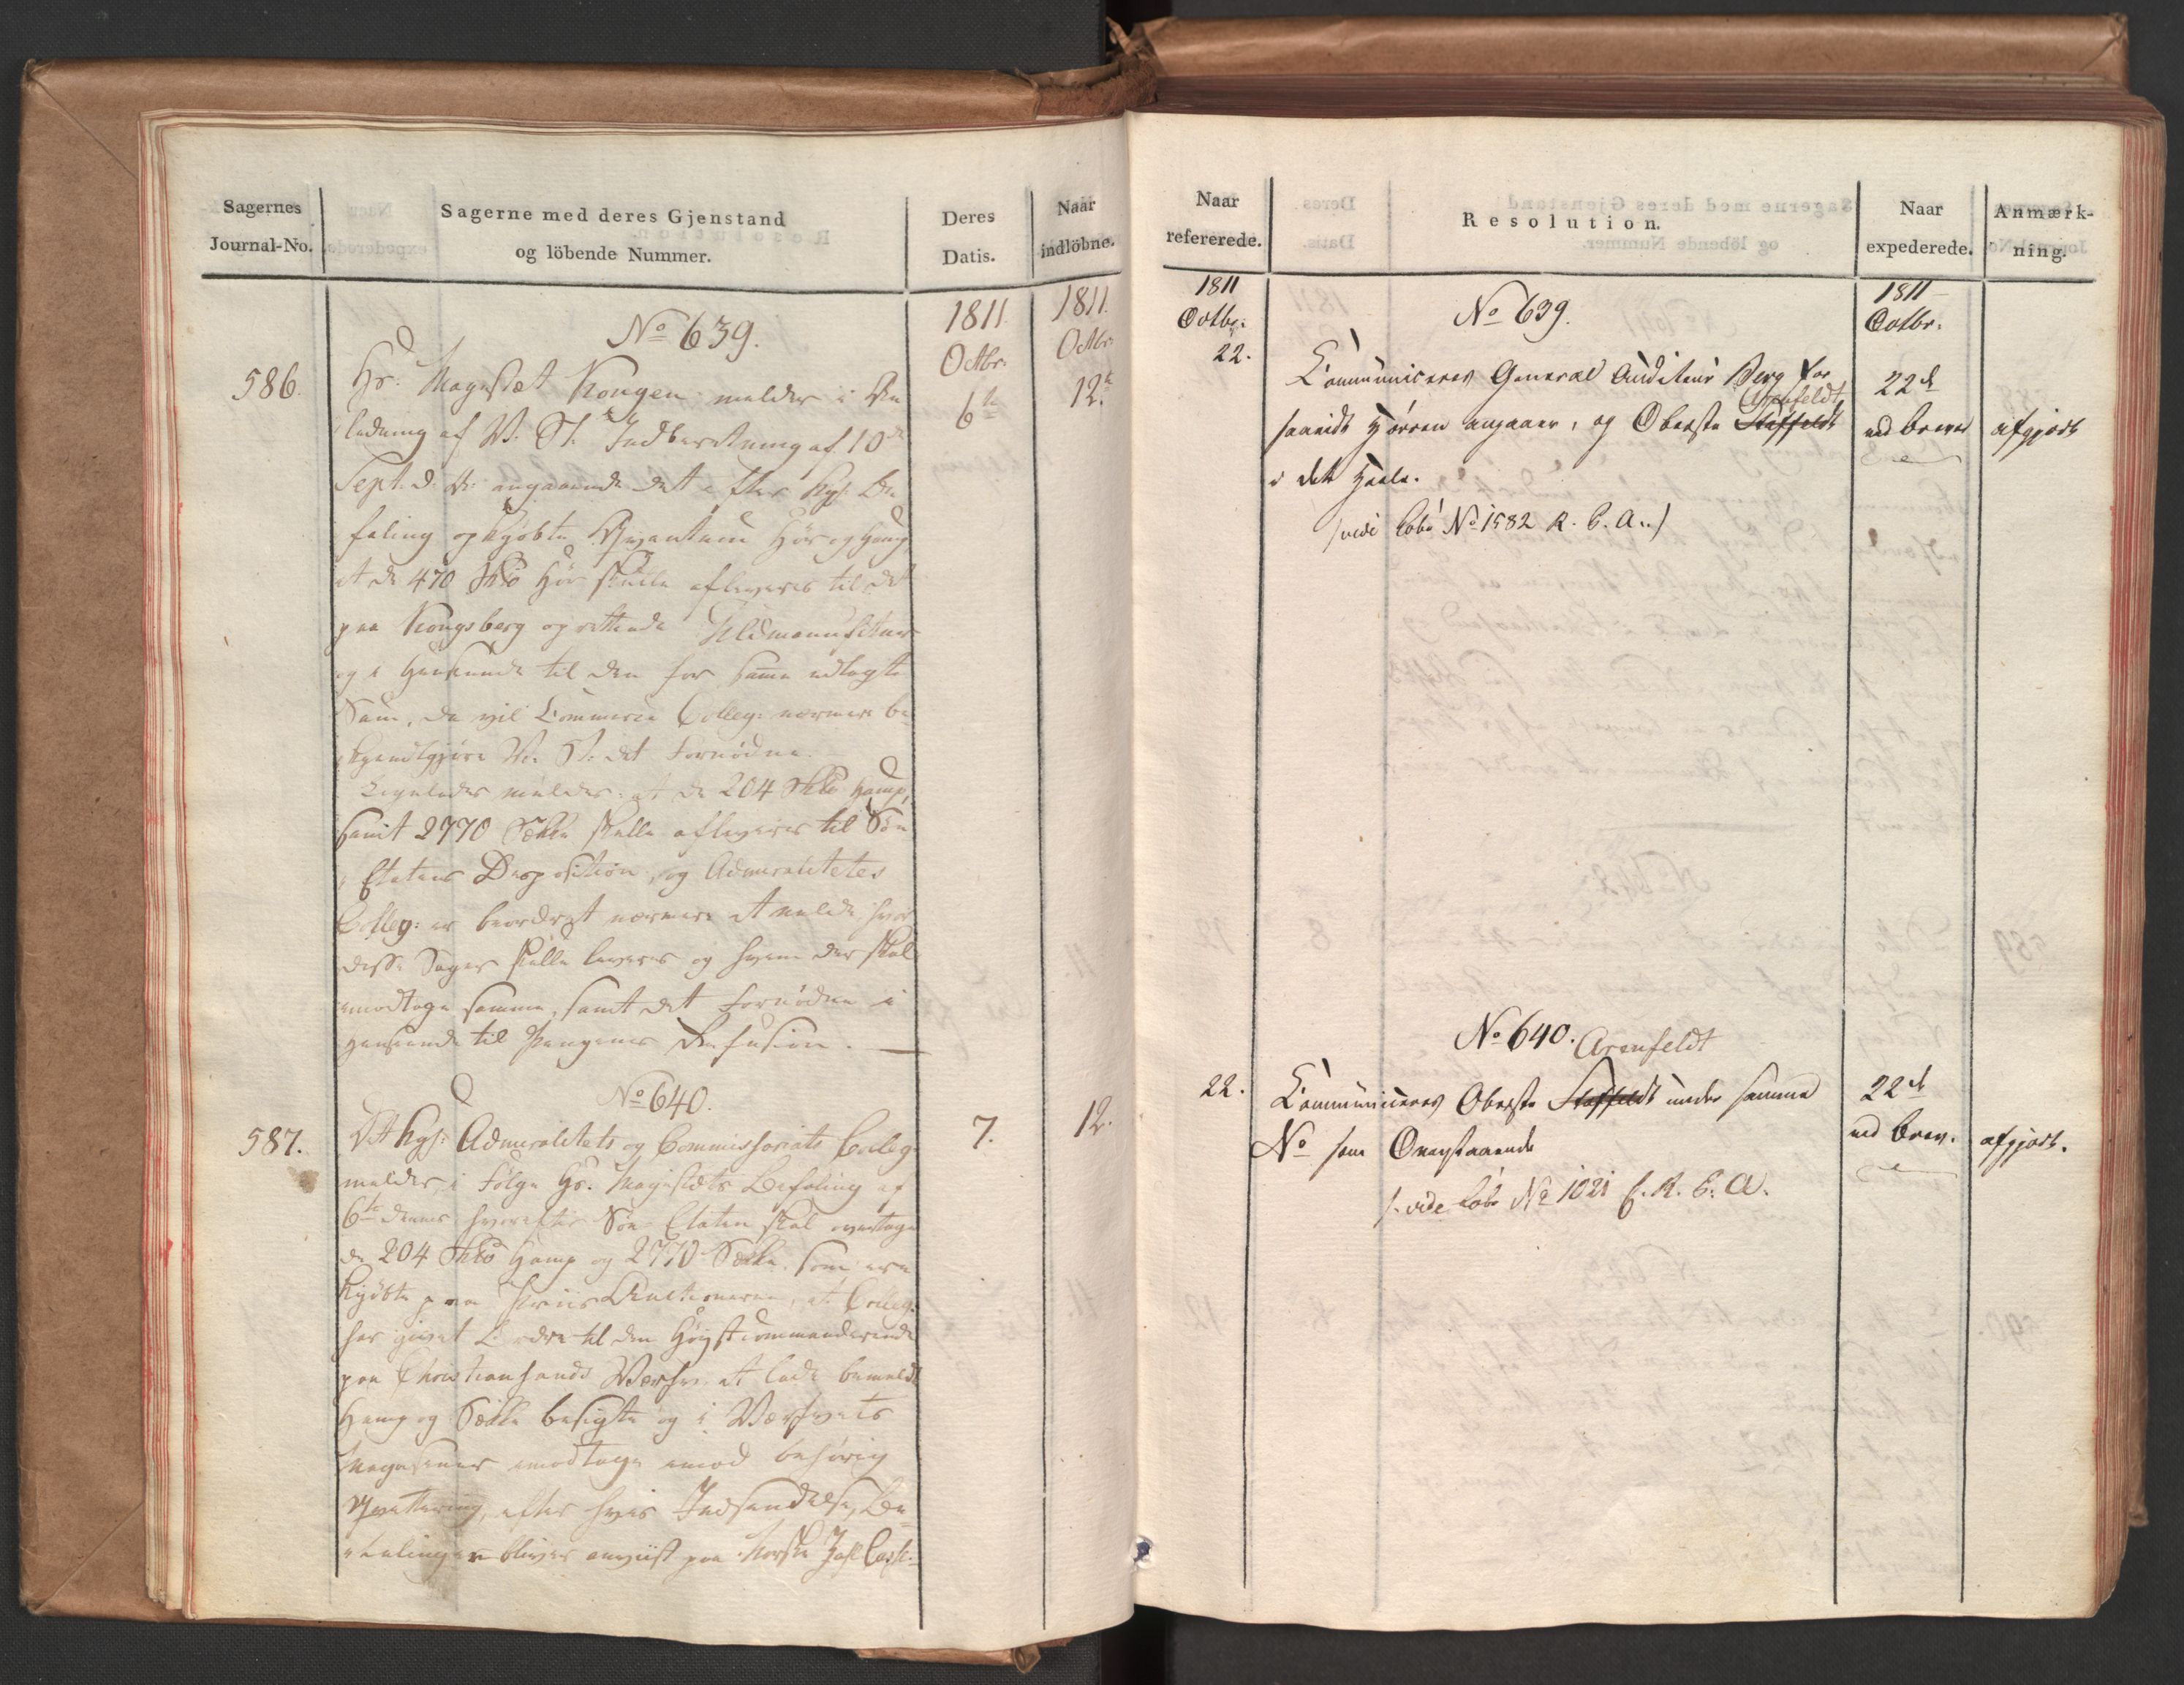 Sagernes
Journal-No.
Sagerne med deres Gjenstand
og löbende Nummer.
Deres
Datis.
Naar
indlöbne.
1811
Octbr.
1811.
Octbr.
No 639.
586.
6te
12te
Hs: Majestæt Kongen melder i An
ledning af V. St. Indberetning af 10de
Sept. d: A: angaaende det efter Kgl: Be
faling opkjøbte Qvantum Hør og Hamp,
at de 470 Hør skulle afleveres til det
paa Kongsberg oprettende Uldmanufactur
og i Henseende til den for samme udlagte
Sum, da vil Commerce Colleg: nærmere be
kjendtgjøre V. St. det fornødne.
Ligeledes melder: at de 204 Hamp,
samt 2770 Sække skulle afleveres til Søe
Etatens Disposition, og Admiralitetes
Colleg: er beordret nærmere at melde, hvor
disse Sager skulle leveres og hvem der skal
modtage samme, samt det fornødne i
Henseende til Pengenes Refusion.
No 640.
587.
7.
12.
Det Kgl: Admiralitets og Commissariats Colleg:
melder, i Følge Hs: Majestæts Befaling af
6te dennes hvorefter Søe-Etaten skal overtage
de 204 Hamp og 2770 Sække, som ere
kjøbte paa Auctionerne, at Colleg:
har givet Ordre til den Høystcommanderende
paa Christiansands Værft at lade bemeldte
Hamp og Sække besigte og i Værftets
Magasiner modtage imod behørig
Qvittering, efter hvis Indsendelse, Be
talingen bliver anviist paa Norske Zahl Casse.
Naar
refererede.
Resolution.
Naar
expederede.
Anmærk-
ning.
1811
Octbr.
1811
Octbr.
No 639.
22.
Communiceres General Auditeur Berg for
saavidt Hørren angaaer, og Oberste Staffeldt
Arenfeldt
i det Heele.
(vide Lobe No 1582 K. C. A.)
22de
ved Breve
afgjort
No 640.
Arenfeldt
22.
Communiceres Oberste Staffeldt under samme
No som Ovenstaaende
(vide Lobe No 1021 f. K. C. A.
22de
ved Brev.
afgjort.